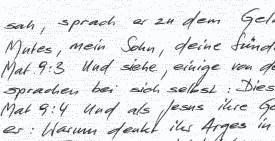 sah, sprach er zu dem Gel
Mutes, mein Sohn, deine Sünd
Mat 9:3 Und siehe, einige von d
sprachen bei sich selbst: Dies
Mat 9:4 Und als Jesus ihre Ge
er: Warum denkt ihr Arges in